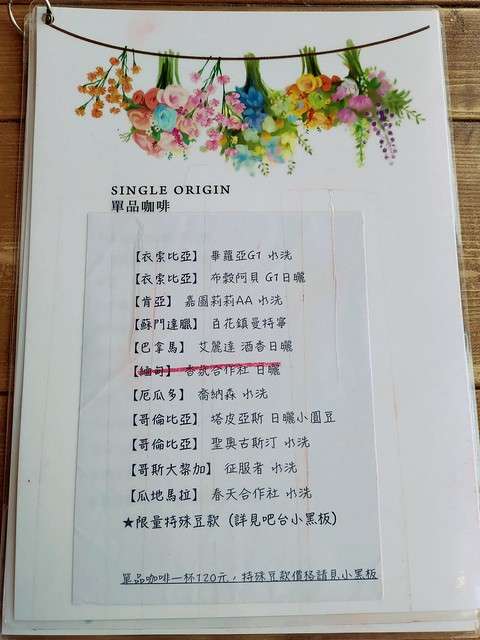 SINGLE ORIGIN
單品咖啡
【衣索比亞】 畢羅亞G1 水洗
【衣索比亞】 布穀阿貝 G1日曬
【肯亞】 嘉圖莉莉AA 水洗
【蘇門達臘】 百花鎮曼特寧
【巴拿馬】 艾麗達 酒香日曬
【緬甸】 香氛合作社 日曬
【厄瓜多】 喬納森 水洗
【哥倫比亞】 塔皮亞斯 日曬小圓豆
【哥倫比亞】 聖奧古斯汀 水洗
【哥斯大黎加】 征服者 水洗
【瓜地馬拉】 春天合作社 水洗
★限量特殊豆款 (詳見吧台小黑板)
單品咖啡一杯120元，特殊豆款價格請見小黑板